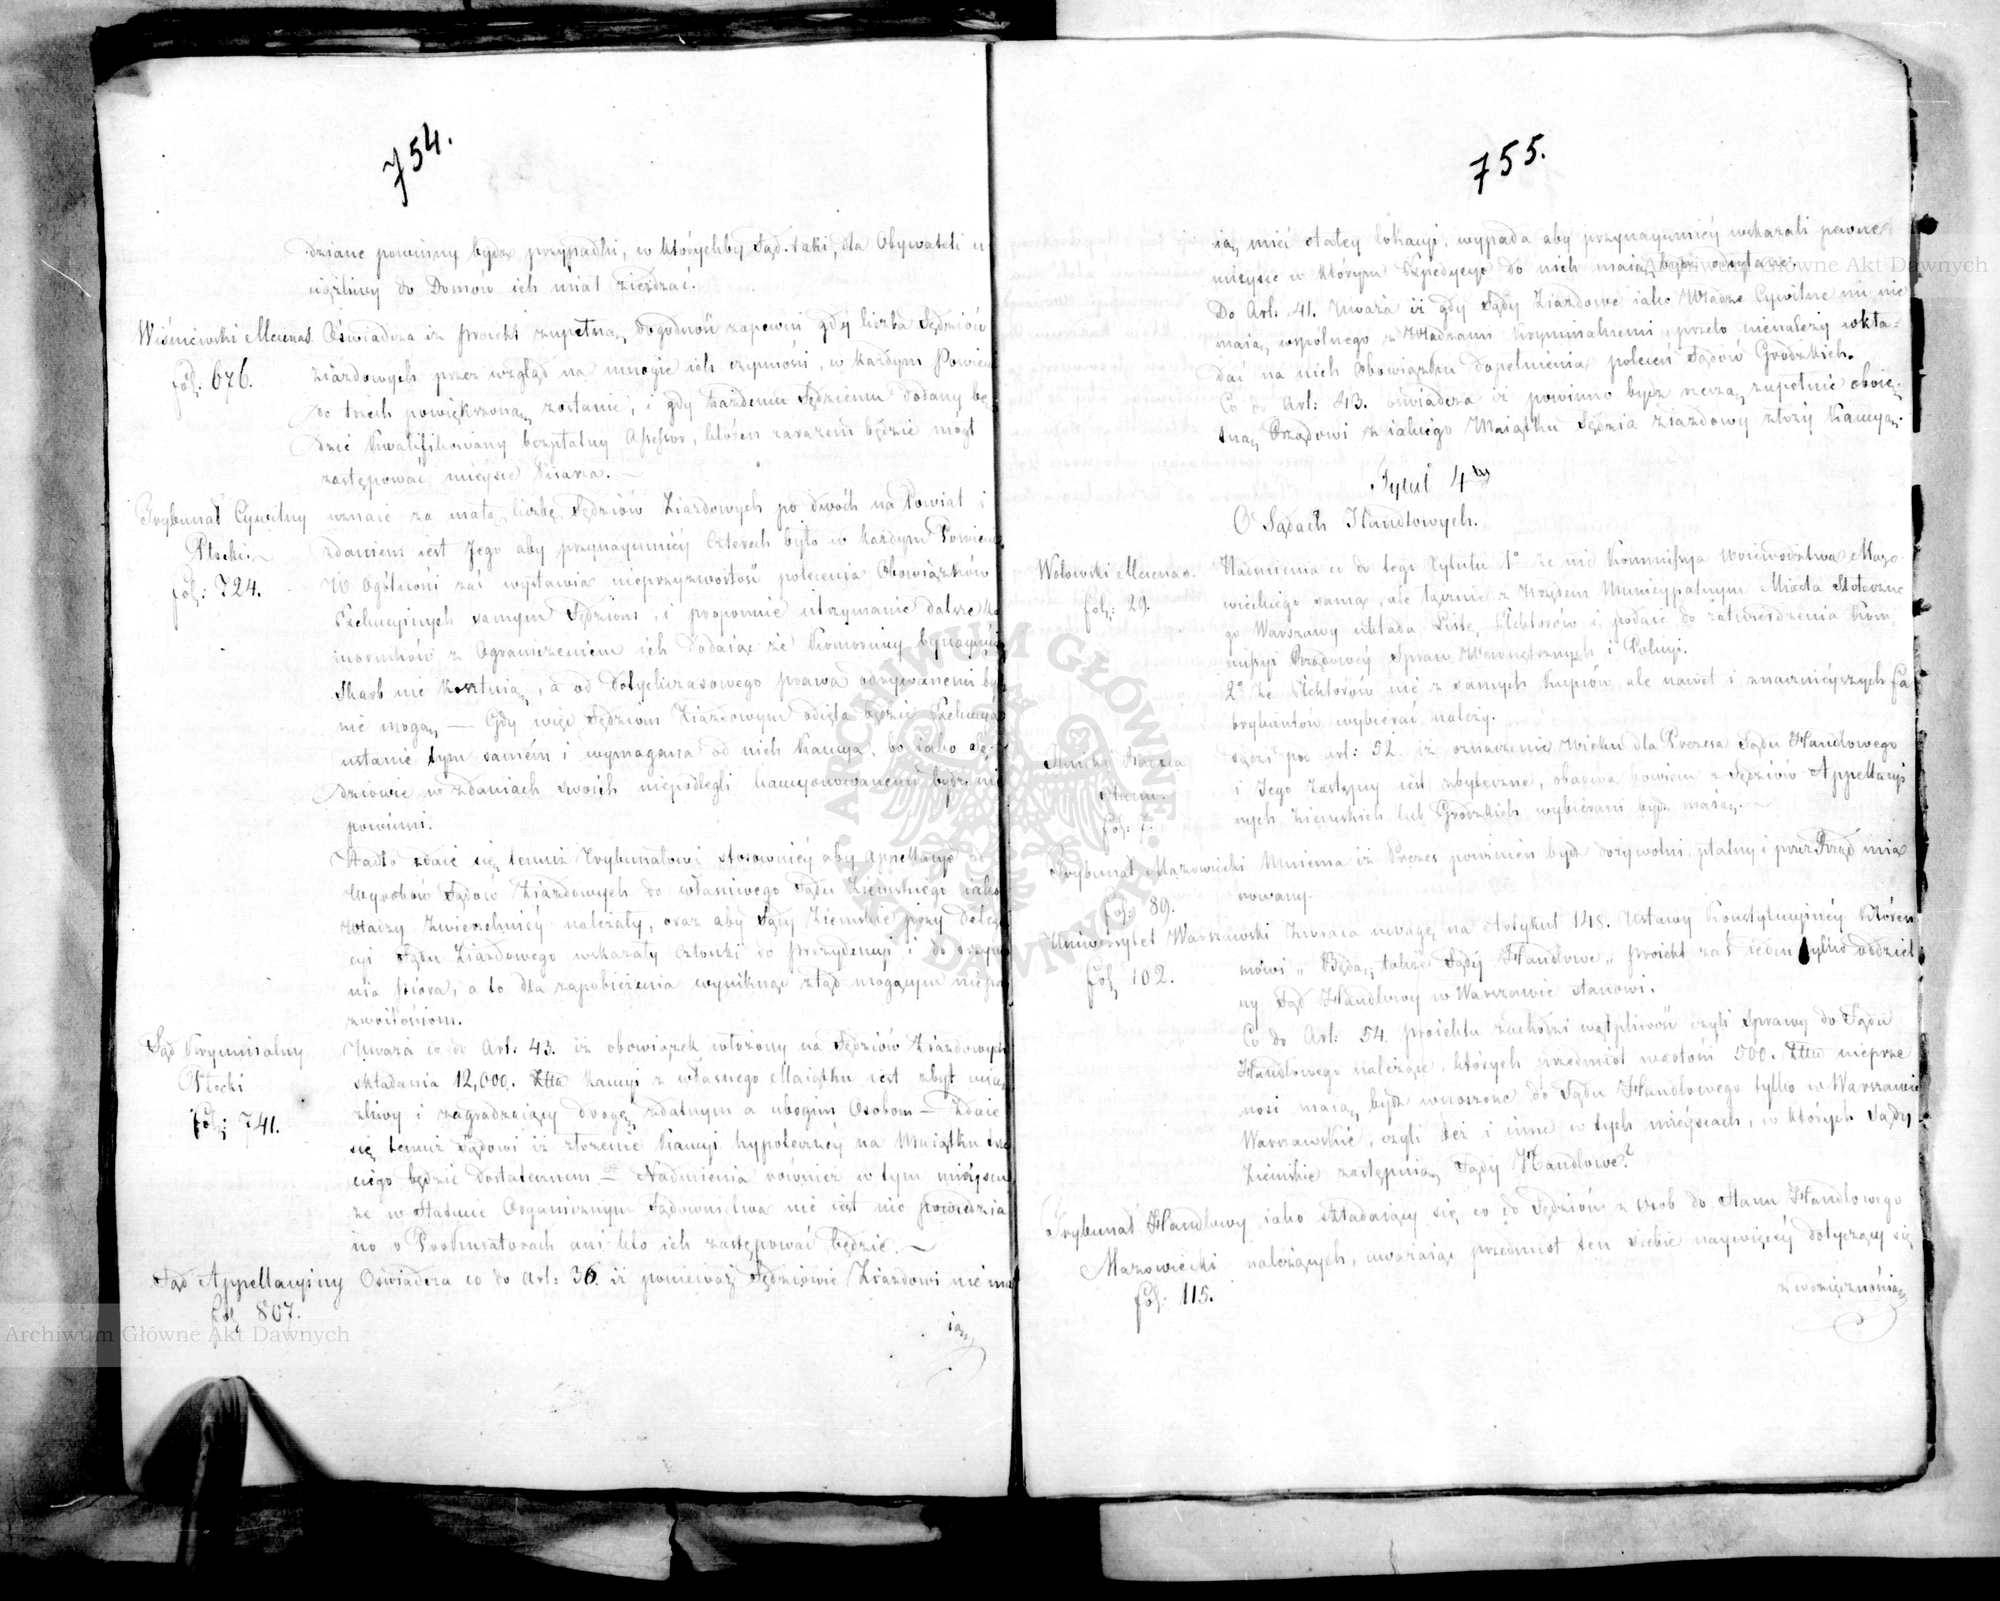 754.
dziane powinny bydź przypadki, w którychby Sąd taki, dla Obywateli u
ciążliwy do Domów ich miał zieżdzać.
Wiśniewski Mecenas.
fol: 676.
Oświadcza iż proiekt zupełną dogodność zapewni gdy liczba Sędziów
Ziazdowych przez wzgląd na mnogie ich czynności, w każdym Powiecie
do trzech powiększoną zostanie, i gdy każdemu Sędziemu dodany bę
dzie kwalifikowany bezpłatny Assessor, któren zarazem będzie mógł
zastępować mieysce Pisarza.
Trybunał Cywilny
Płocki.
fol: 724.
uznaie za małą liczbę Sędziów Ziazdowych po dwóch na Powiat i
zdaniem iest Jego aby przynaymniey Czterech było w każdym Powiecie
W Ogólności zaś wystawia nieprzyzwoitość polecenia Obowiązków
Exekucyinych samym Sędziom, i proponuie utrzymanie dalsze Ko
morników z Ograniczeniem ich dodaiąc że Komornicy bynaymniey
Skarb nie kosztuią, a od dotychczasowego prawa odrywanemi bydź
nie mogą — Gdy więc Sędziom Ziazdowym odięta będzie Exekucya
ustanie tym samém i wymagana od nich Kaucya, bo iako Sę-
dziowie w zdaniach swoich niepodlegli kaucyonowanemi bydź nie
powinni.
Nadto zdaie się temuż Trybunałowi stosowniey aby Appellacye od
Wyroków Sądów Ziazdowych do właściwego Sądu Ziemskiego iako
Władzy Zwierzchniey należały, oraz aby Sądy Ziemskie przy Delega
cyi Sądu Ziazdowego wskazały Członki do prezydencyi i do trzyma
nia pióra, a to dla zapobieżenia wyniknąć ztąd mogącym nieprzy
zwoitościom.
Sąd Kryminalny
Płocki
fol: 741.
Uważa co do Art: 43. iż obowiązek włożony na Sędziów Ziazdowych
składania 12,000. Złtu Kaucyi z własnego Maiątku iest zbyt uciąż
żliwy i zagradzaiący drogę zdatnym a ubogim Osobom — Zdaie
się temuż Sądowi iż złożenie Kaucyi hypoteczney na Maiątku trze
ciego będzie dostatecznem — Nadmienia również w tym mieyscu
że w Statucie Organicznym Sądownictwa nie iest nic powiedzia
no o Prokuratorach ani kto ich zastępować będzie.
Sąd Appellacyiny
fol: 807.
Oświadcza co do Art: 36. iż ponieważ Sędziowie Ziazdowi nie ma
ią
755.
ią mieć stałey lokacyi, wypada aby przynaymniey wskazali pewne
mieysce w którym Expedycye do nich maią bydź odsyłane.
Do Art: 41. Uważa iż gdy Sądy Ziazdowe iako Władze Cywilne nic nie
maią wspólnego z Władzami Kryminalnemi, przeto nienależy wkła-
dać na nich Obowiązku dopełnienia poleceń Sądów Grodzkich.
Co do Art: 43. oświadcza iż powinno bydź rzeczą zupełnie oboię-
tną Rządowi z iakiego Maiątku Sędzia Ziazdowy złoży Kaucyą.
Tytuł 4ty
O Sądach Handlowych.
Wołowski Mecenas.
fol: 29.
Nadmienia co do tego tytułu 1° że nie Kommissya Woiewództwa Mazo-
wieckiego sama, ale łącznie z Urzędem Municypalnym Miasta Stołeczne
go Warszawy układa Listę Elektorów i podaie do zatwierdzenia Kom
missyi Rządowey Spraw Wewnętrznych i Policyi.
2° że Elektorów nie z samych Kupców ale nawet i znacznieyszych Fa
brykantów wybierać należy.
fol: 7.
sądzi pod art: 52. iż oznaczenie Wieku dla Prezesa Sądu Handlowego
i Jego Zastępcy iest zbyteczne, obadwa bowiem z Sędziów Appellacyi
nych, Ziemskich lub Grodzkich wybierani bydź maią.
Trybunał Mazowiecki
fol: 89.
mniema iż Prezes powinien bydź dożywotni, płatny i przez Rząd mia
nowany.
Uniwersytet Warszawski
fol: 102.
Zwraca uwagę na Artykuł 148. Ustawy Konstytucyiney któren
mówi „ Będą także Sądy Handlowe „ proiekt zaś ieden tylko oddziel
ny Sąd Handlowy w Warszawie stanowi.
Co do Art: 54. proiektu zachodzi wątpliwość czyli Sprawy do Sądu
Handlowego należące, których przedmiot wartości 500. Złtu nieprze
nosi maią bydź wnoszone do Sądu Handlowego tylko w Warszawie
Warszawskie, czyli też i inne w tych mieyscach, w których Sądy
Ziemskie zastępuią Sądy Handlowe?
Trybunał Handlowy
Mazowiecki
fol: 115.
iako składaiący się co do Sędziów z osób do Stanu Handlowego
należących, uważaiąc przedmiot ten siebie naywięcey dotyczący się
z wdzięcznością
Archiwum Główne Akt Dawnych
Archiwum Główne Akt Dawnych
ARCHIWUM GŁÓWNE AKT DAWNYCH